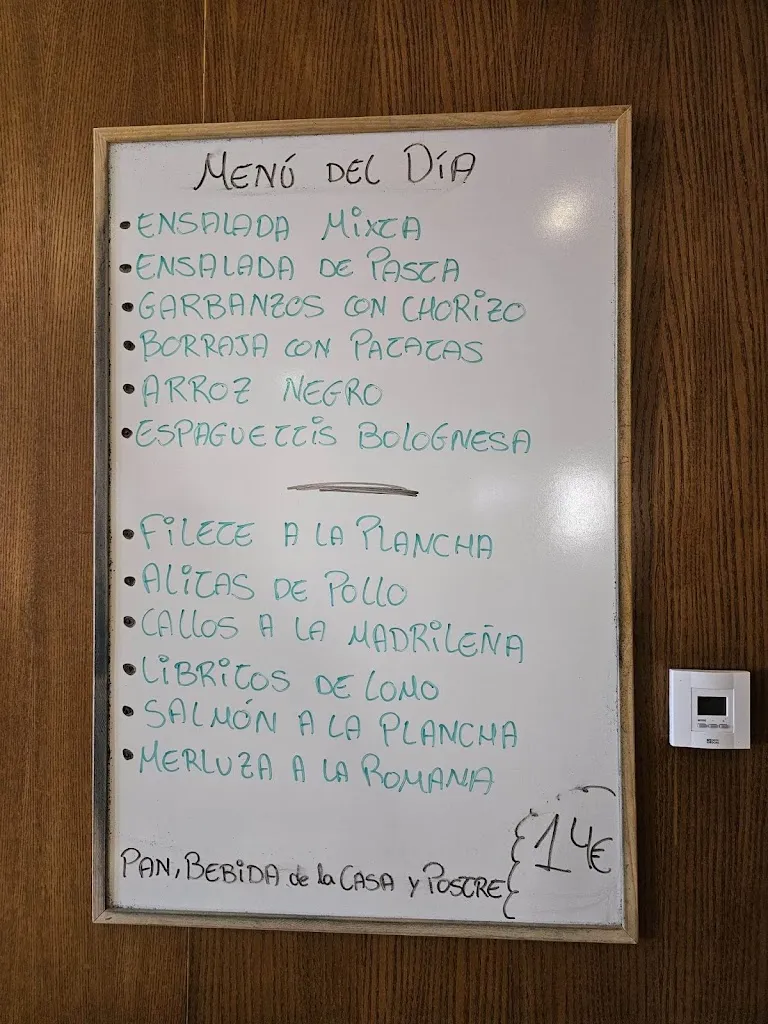 MENÚ DEL DÍA
• ENSALADA MIXTA
• ENSALADA DE PASTA
• GARBANZOS CON CHORIZO
• BORRAJA CON PATATAS
• ARROZ NEGRO
• ESPAGUETTIS BOLOGNESA
• FILETE A LA PLANCHA
• ALITAS DE POLLO
• CALLOS A LA MADRILEÑA
• LIBRITOS DE LOMO
• SALMÓN A LA PLANCHA
• MERLUZA A LA ROMANA
PAN, BEBIDA de la CASA Y POSTRE { 14€